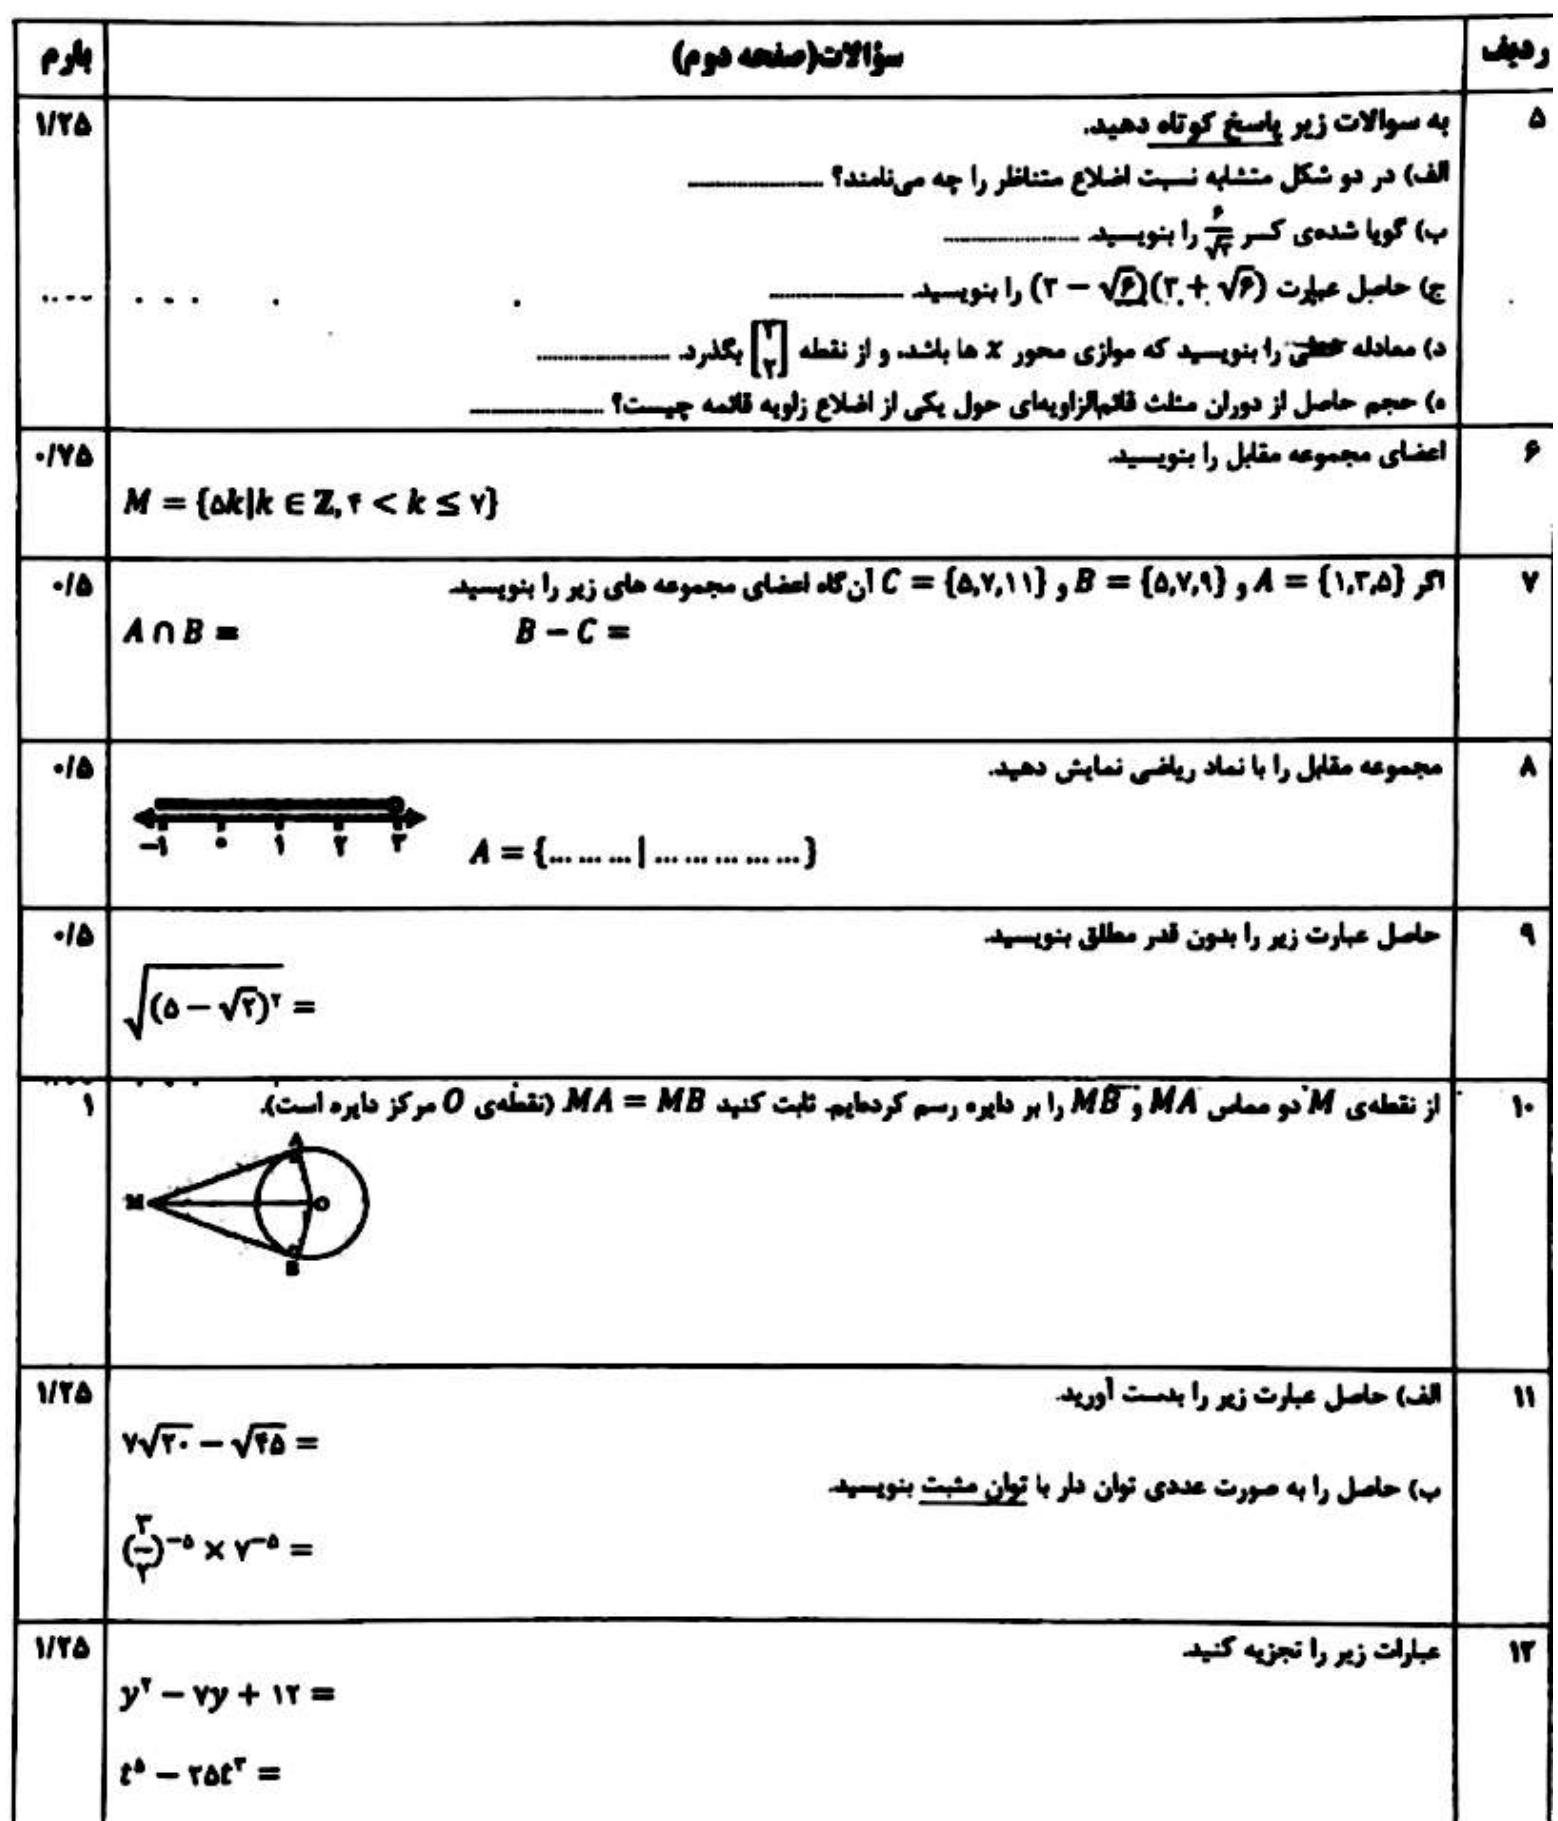 ردیف سؤالات(صفحه دوم) بارم
۵ به سوالات زیر پاسخ کوتاه دهید. ۱/۲۵
الف) در دو شکل متشابه نسبت اضلاع متناظر را چه می‌نامند؟ ....................
ب) گویا شده‌ی کسر را بنویسید. ....................
ج) حاصل عبارت (۳ − √۶)(۳ + √۶) را بنویسید. ....................
د) معادله خطی را بنویسید که موازی محور x ها باشد. و از نقطه بگذرد. ....................
ه) حجم حاصل از دوران مثلث قائم‌الزاویه‌ای حول یکی از اضلاع زاویه قائمه چیست؟ ....................
۶ اعضای مجموعه مقابل را بنویسید. ۰/۷۵
M = {۵k|k ∈ ℤ, ۴ < k ≤ ۷}
۷ اگر A = {۱,۳,۵} و B = {۵,۷,۹} و C = {۵,۷,۱۱} آن‌گاه اعضای مجموعه های زیر را بنویسید. ۰/۵
A ∩ B = B − C =
۸ مجموعه مقابل را با نماد ریاضی نمایش دهید. ۰/۵
−۱ ۰ ۱ ۲ ۳ A = {... ... ... | ... ... ... ... ...}
۹ حاصل عبارت زیر را بدون قدر مطلق بنویسید. ۰/۵
√(۵ − √۲)² =
۱۰ از نقطه‌ی M دو مماس MA و MB را بر دایره رسم کرده‌ایم. ثابت کنید MA = MB (نقطه‌ی O مرکز دایره است). ۱
A
M O
B
۱۱ الف) حاصل عبارت زیر را بدست آورید. ۱/۲۵
۷√۲۰ − √۴۵ =
ب) حاصل را به صورت عددی توان دار با توان مثبت بنویسید.
(۳/۲)⁻⁵ × ۷⁻⁵ =
۱۲ عبارات زیر را تجزیه کنید. ۱/۲۵
y² − ۷y + ۱۲ =
t⁵ − ۲۵t³ =